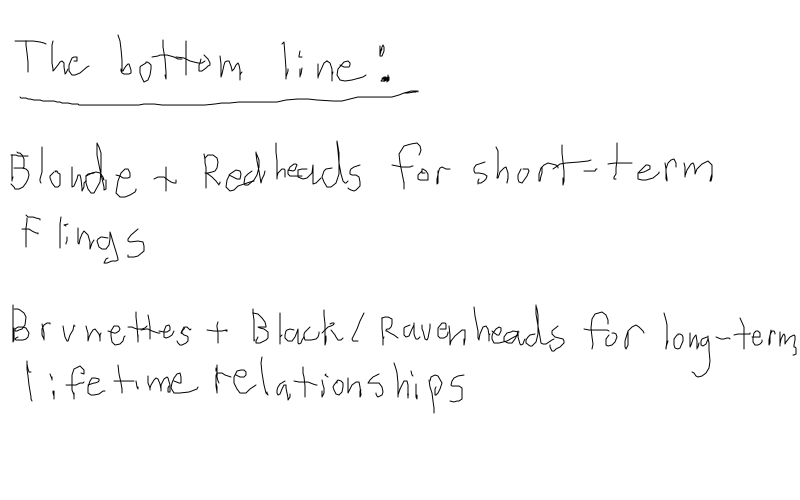 The bottom line:
Blonde + Redheads for short-term
Flings
Brunettes + Black/Ravenheads for long-term,
lifetime relationships